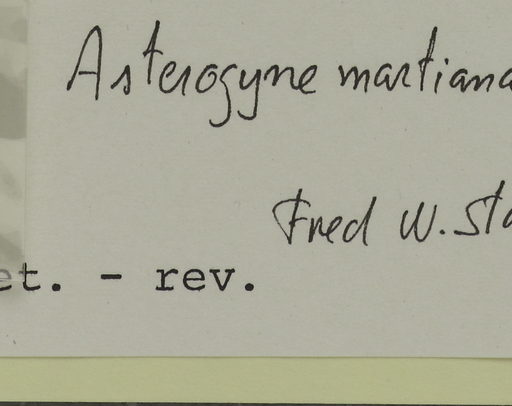 Asterogyne martiana
Fred W. Sta
et. - rev.